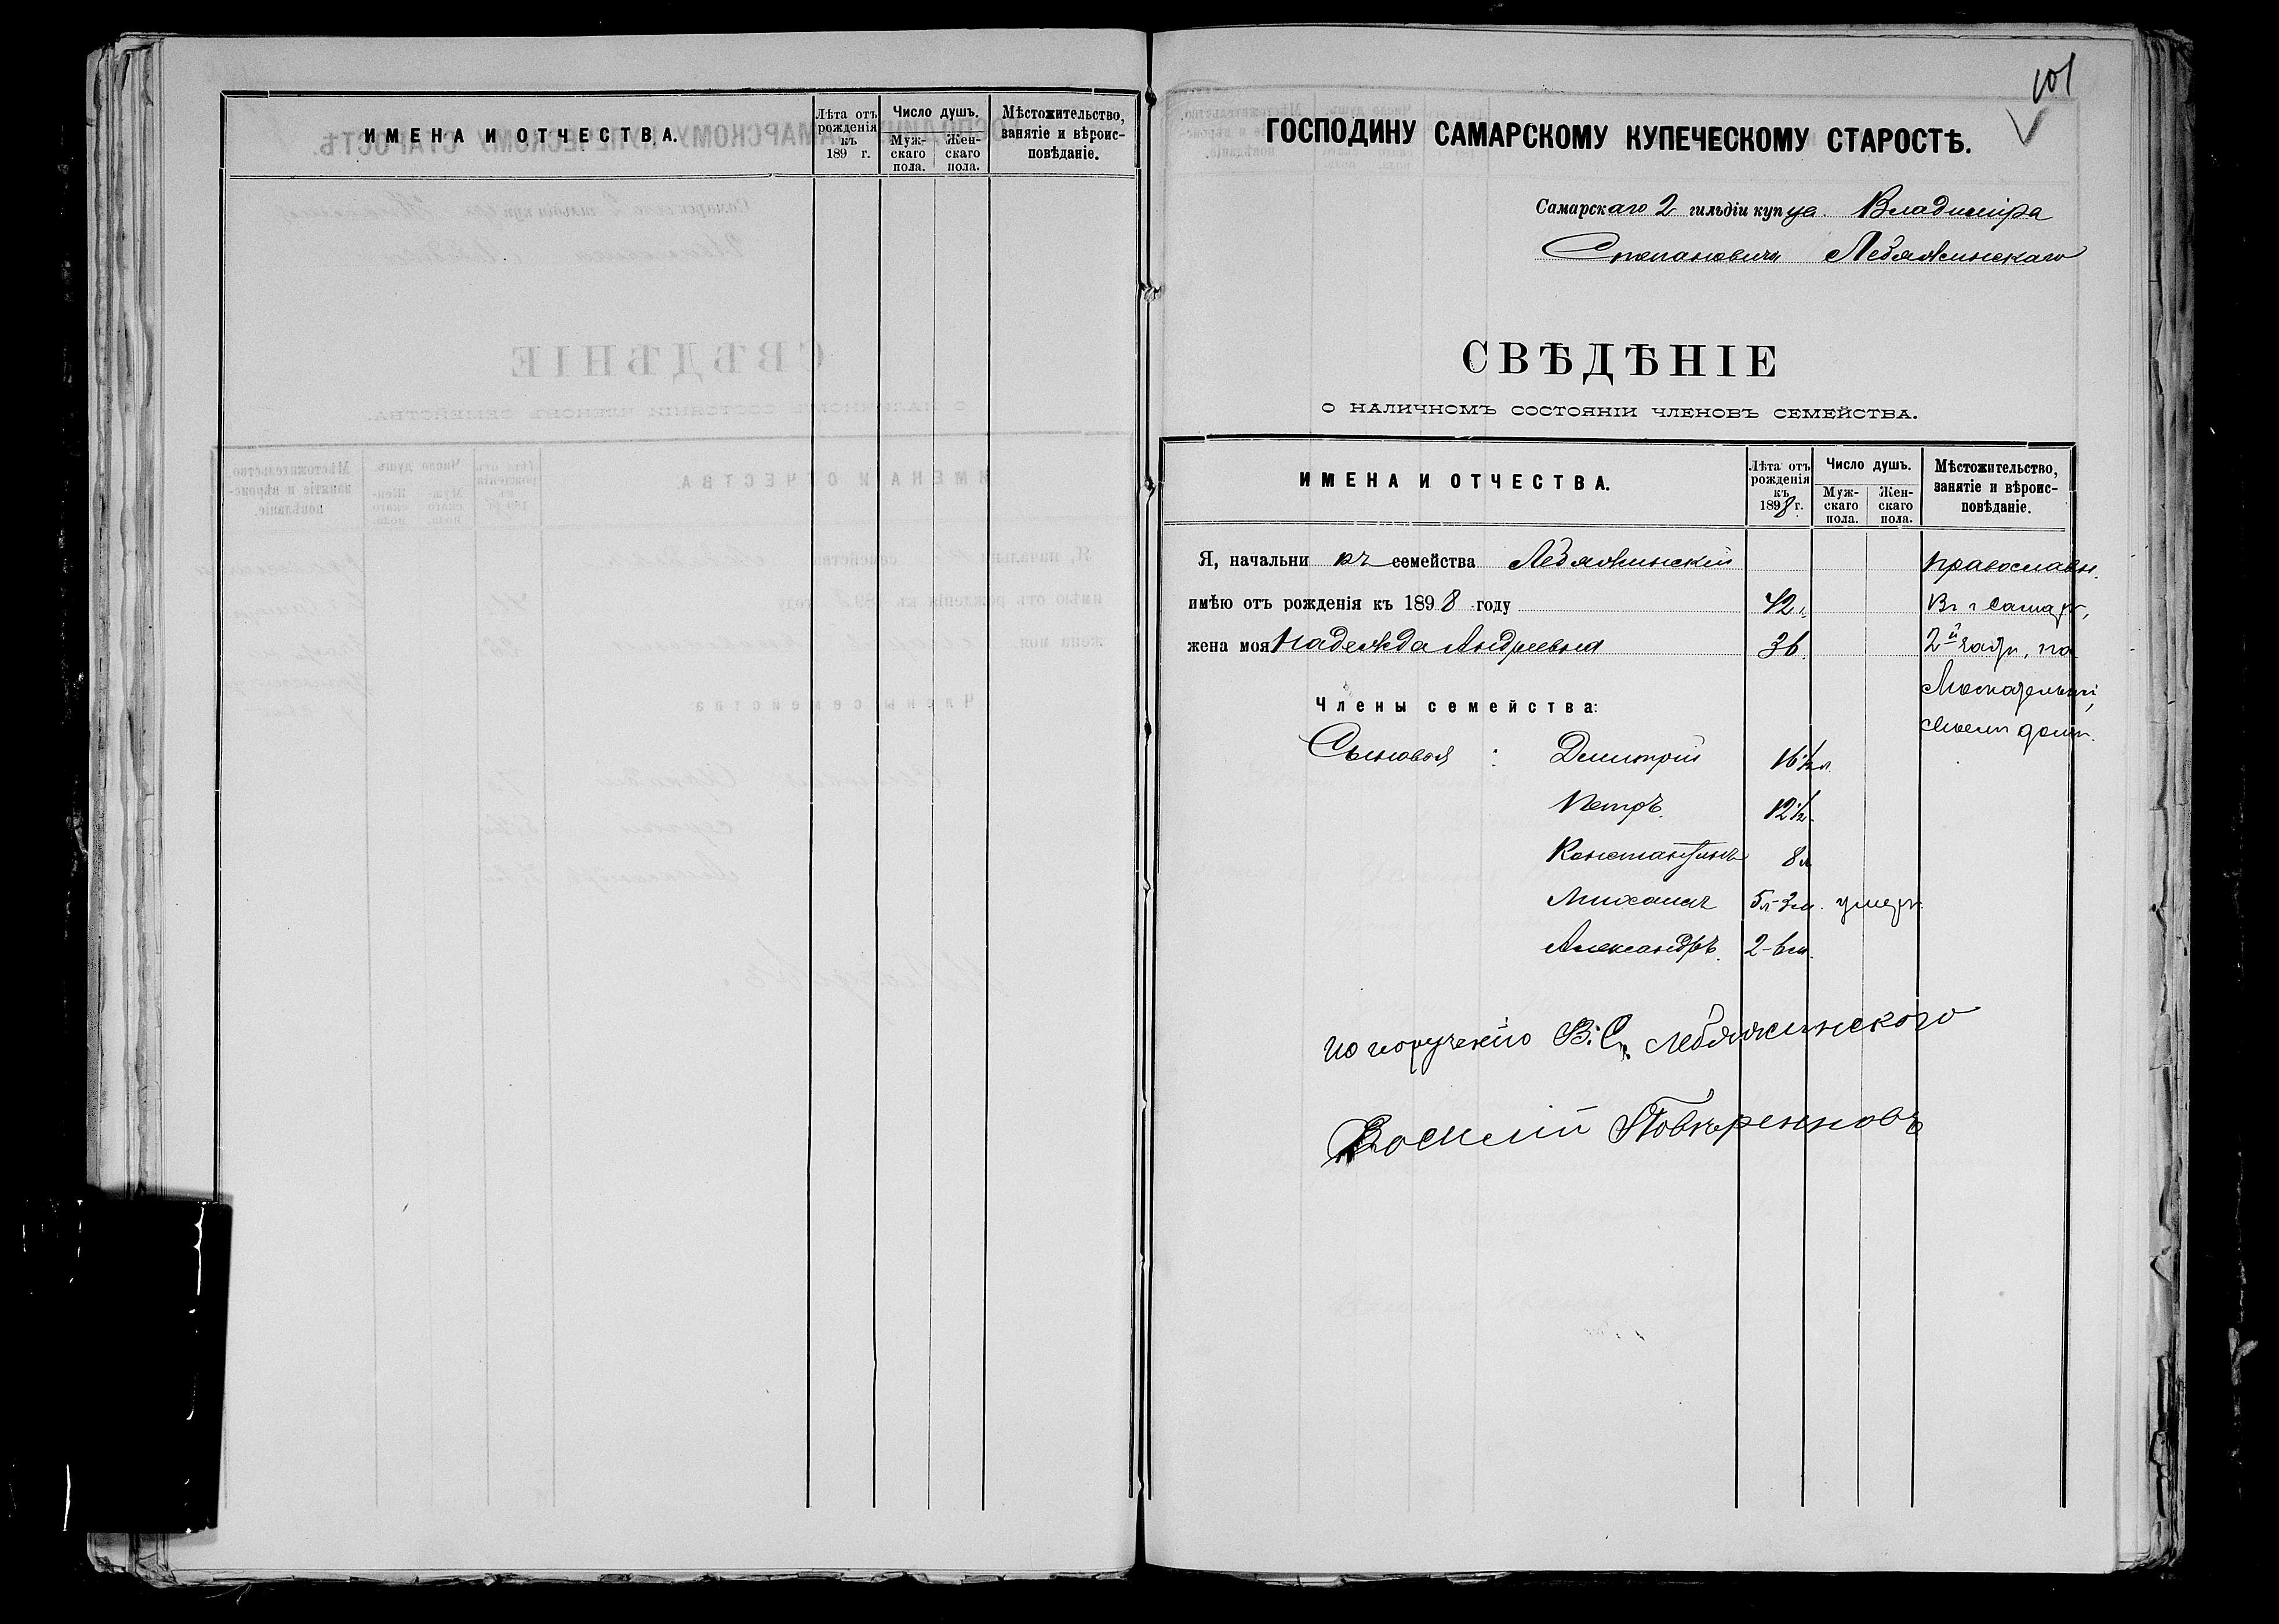 ИМЕНА И ОТЧЕСТВА.
Лѣта отъ рожденія къ 189 г.
Число душъ.
Муж-скаго пола.
Жен-скаго пола.
Мѣстожительство, занятіе и вѣроис-повѣданіе.
101
ГОСПОДИНУ САМАРСКОМУ КУПЕЧЕСКОМУ СТАРОСТѢ.
Самарскаго 2 гильдіи купца Владиміра
Степановича Лебяжинскаго
СВѢДѢНІЕ
О НАЛИЧНОМЪ СОСТОЯНІИ ЧЛЕНОВЪ СЕМЕЙСТВА.
ИМЕНА И ОТЧЕСТВА.
Лѣта отъ рожденія къ 1898 г.
Число душъ.
Муж-скаго пола.
Жен-скаго пола.
Мѣстожительство, занятіе и вѣроис-повѣданіе.
Я, начальникъ семейства Лебяжинскій православн.
имѣю отъ рожденія къ 1898 году 42 Въ г Самарѣ,
жена моя Надежда Андреевна 36. 2й части, по
Члены семейства:
своемъ домѣ.
Сыновья: Дмитрій 16 1/2 л.
Петръ. 12 1/2
Константинъ 8 л
Михаилъ 5 л-3 м. умеръ.
Александръ. 2-6 м.
по порученію В. С. Лебяжинского
Василій Повѣренновъ